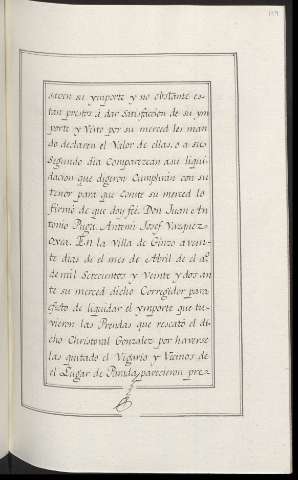 saven su ymporte y no obstante es-
tan prestos â dar Satisfaccion de su ym
porte y Visto por su merced les man
do declaren el Valor de ellas, o a su
Segundo dia Comparezcan a su liqui-
dacion que digeron Cumplirán con su
tenor para que Conste su merced lo
firmó de que doy fée. Don Juan An
tonio Puga. Antemi Josef Vazquez
Oxea. En la Villa de Ginzo a vein
te dias de el mes de Abril de el aº.
de mil Setecientos y Veinte y dos an
te su merced dicho Corregidor para
efecto de liquidar el ymporte que tu-
vieron las Prendas que rescató el di-
cho Christoval Gonzalez por haverse
las quitado el Vigario y Vicinos de
el Lugar de Parada parecieron pre-